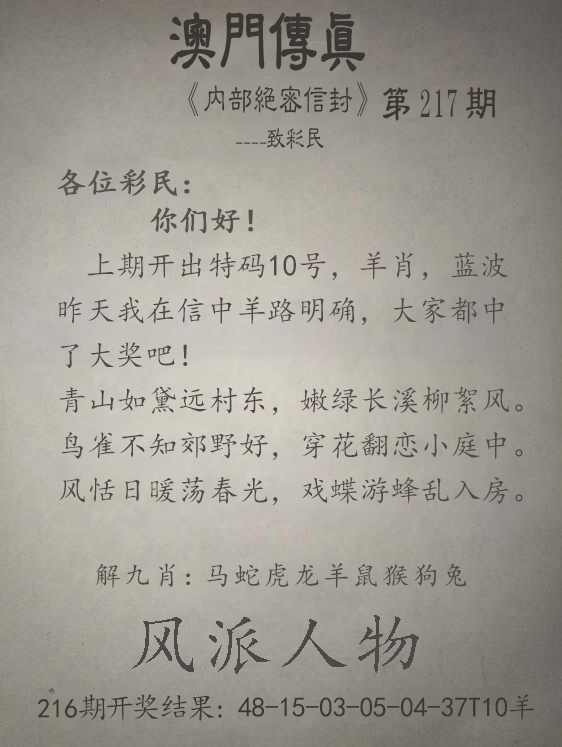 澳門傳眞
《内部絕密信封》第217期
----致彩民
各位彩民：
你们好！
上期开出特码10号，羊肖，蓝波
昨天我在信中羊路明确，大家都中
了大奖吧！
青山如黛远村东，嫩绿长溪柳絮风。
鸟雀不知郊野好，穿花翻恋小庭中。
风恬日暖荡春光，戏蝶游蜂乱入房。
解九肖：马蛇虎龙羊鼠猴狗兔
风派人物
216期开奖结果：48-15-03-05-04-37T10羊